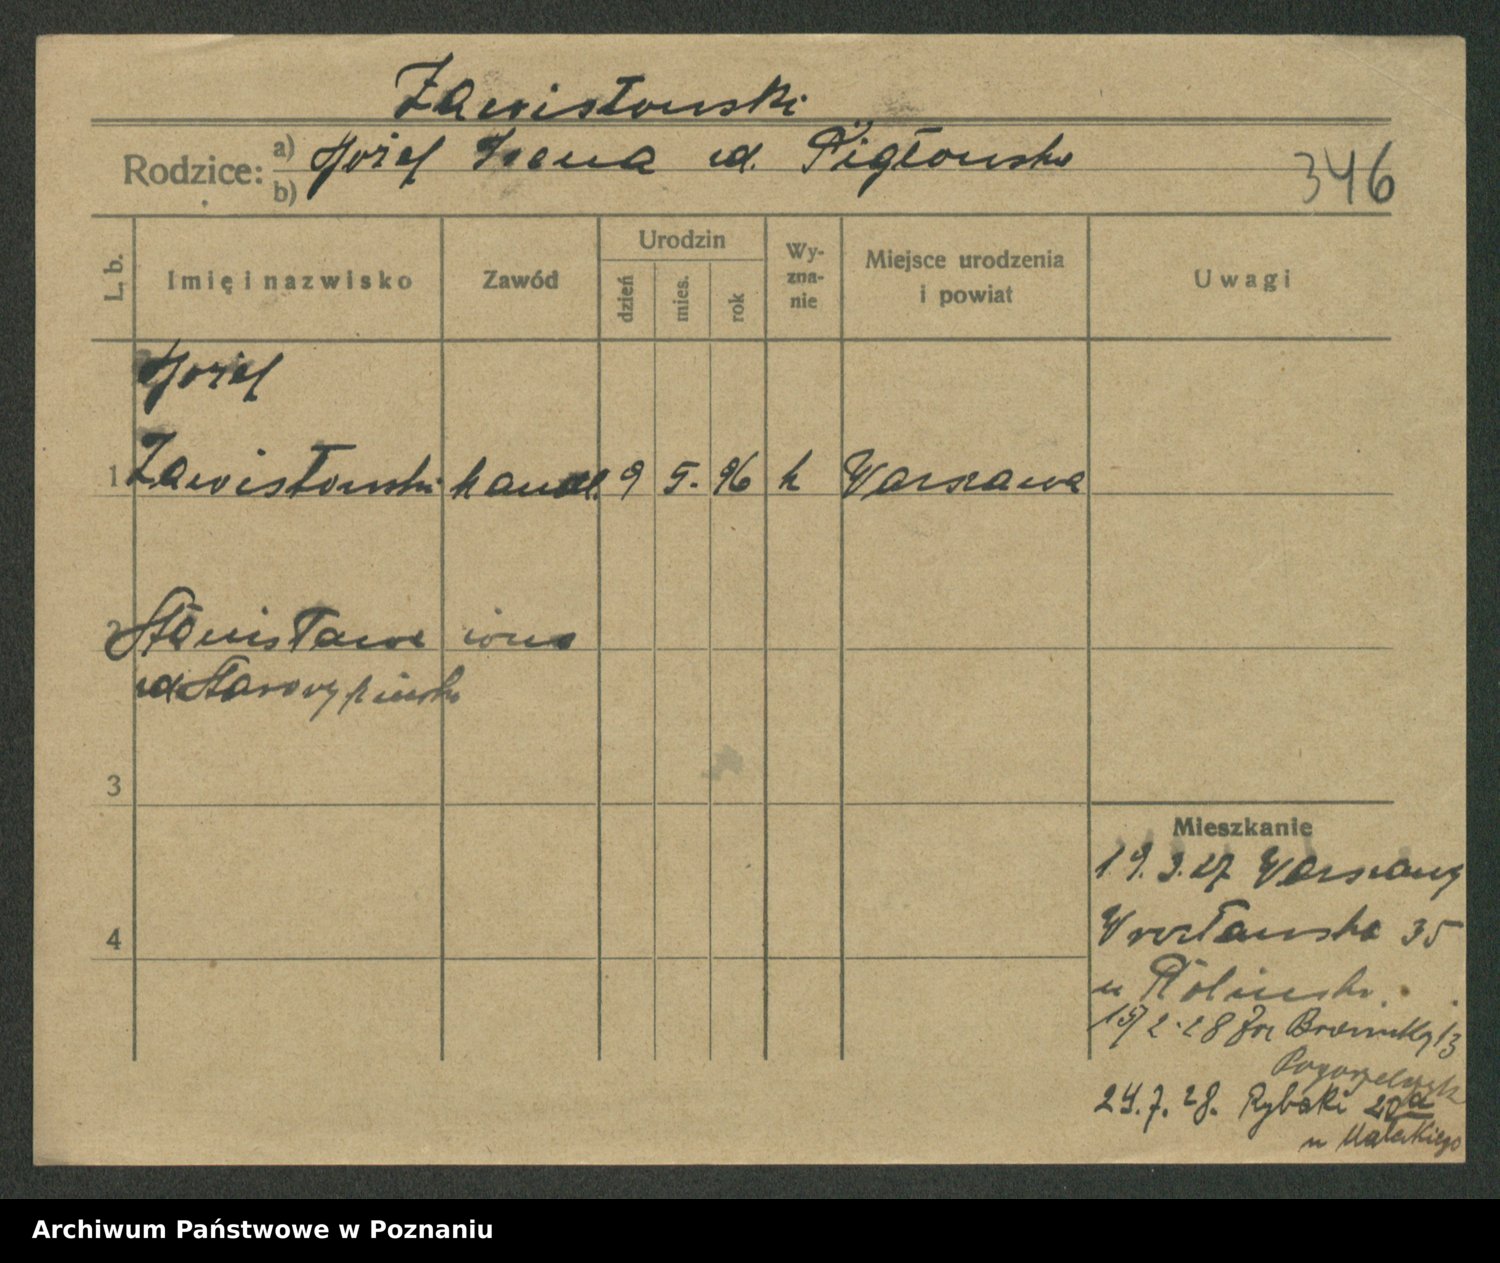 Zawistowski
Rodzice: a) Józef Irena ud. Pigłowska
b)
346
L. b. Imię i nazwisko Zawód Urodzin dzień mies. rok Wy-zna-nie Miejsce urodzenia i powiat Uwagi
Józef
1 Zawistowski handl. 9 5. 96 k Warszawa
2 Stanisława żona
ud
3
Mieszkanie
19.3.27 Warszawy
4
Wrocławska 35
u
15/2.28 Br 13
24.7.28. Rybaki 20a
u Małeckiego
Archiwum Państwowe w Poznaniu